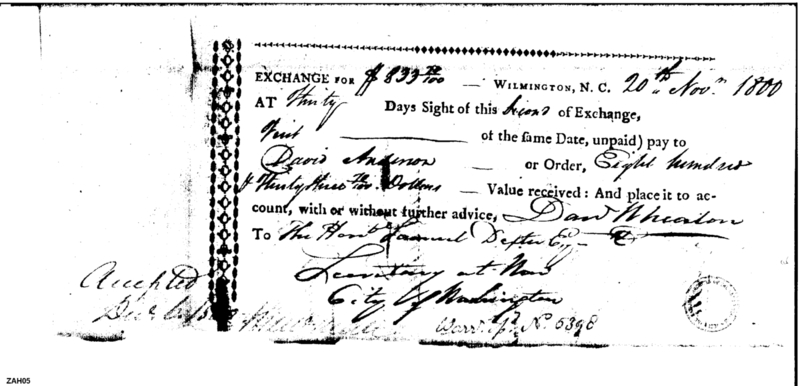 EXCHANGE FOR $ 833 70/100 — WILMINGTON, N. C. 20th Novr 1800
AT Thirty Days Sight of this Second of Exchange,
First of the same Date, unpaid) pay to
David Anderson — or Order, Eight hundred
& Thirty three 70/100 Dollars — Value received: And place it to ac-
count, with or without further advice,
To The Honl Samuel Dexter Esq
Secretary at War
City of Washington
Accepted
Warrt No 5898
ZAH05